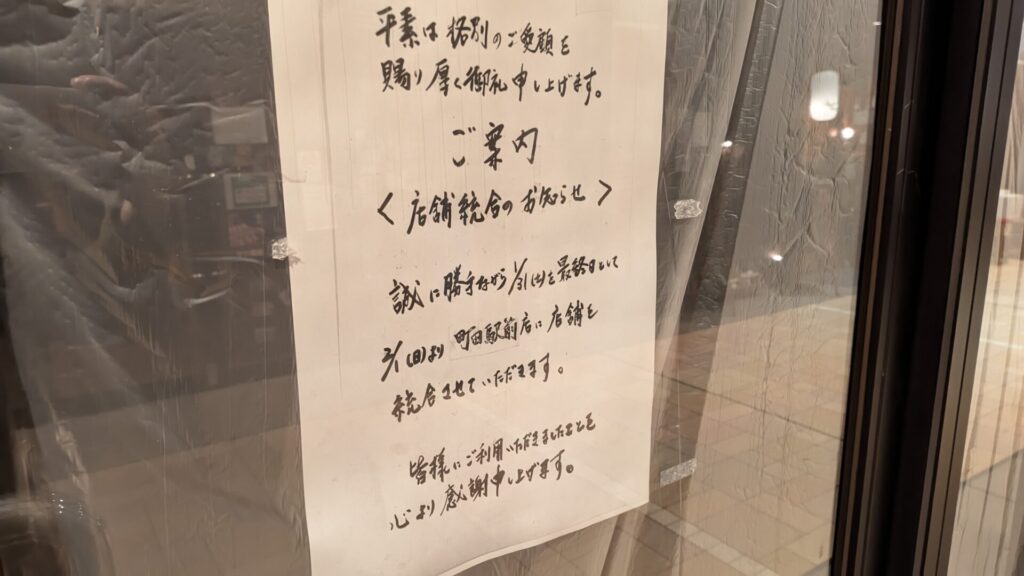 平素は格別のご愛顧を
賜り厚く御礼申し上げます。
ご案内
<店舗統合のお知らせ>
誠に勝手ながら1/31(土)を最終日として
2/1(日)より町田駅前店に店舗を
統合させていただきます。
皆様にご利用いただきましたことを
心より感謝申し上げます。